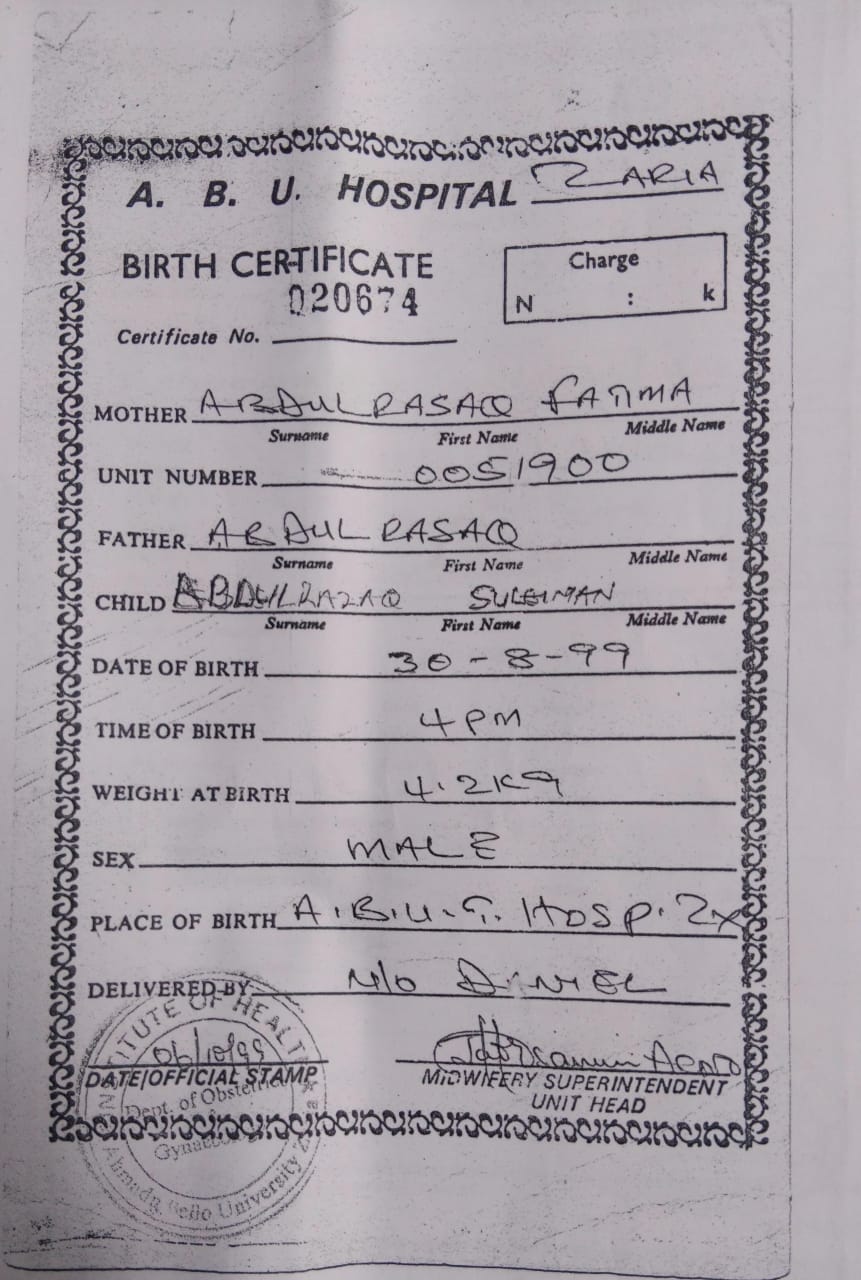 A. B. U. HOSPITAL ZARIA
BIRTH CERTIFICATE
Charge
N : k
020674
Certificate No.
MOTHER ABDULRASAQ FATIMA
Surname First Name Middle Name
UNIT NUMBER 0051900
FATHER ABDULRASAQ
Surname First Name Middle Name
CHILD ABDULRAZAQ SULEIMAN
Surname First Name Middle Name
DATE OF BIRTH 30-8-99
TIME OF BIRTH 4PM
WEIGHT AT BIRTH 4.2Kg
SEX MALE
PLACE OF BIRTH A.B.U.T. HOSP. ZX
DELIVERED BY N/O DANIEL
06/10/99
DATE/OFFICIAL STAMP
MIDWIFERY SUPERINTENDENT
UNIT HEAD
OF HEALT
Dept. of
Bello University